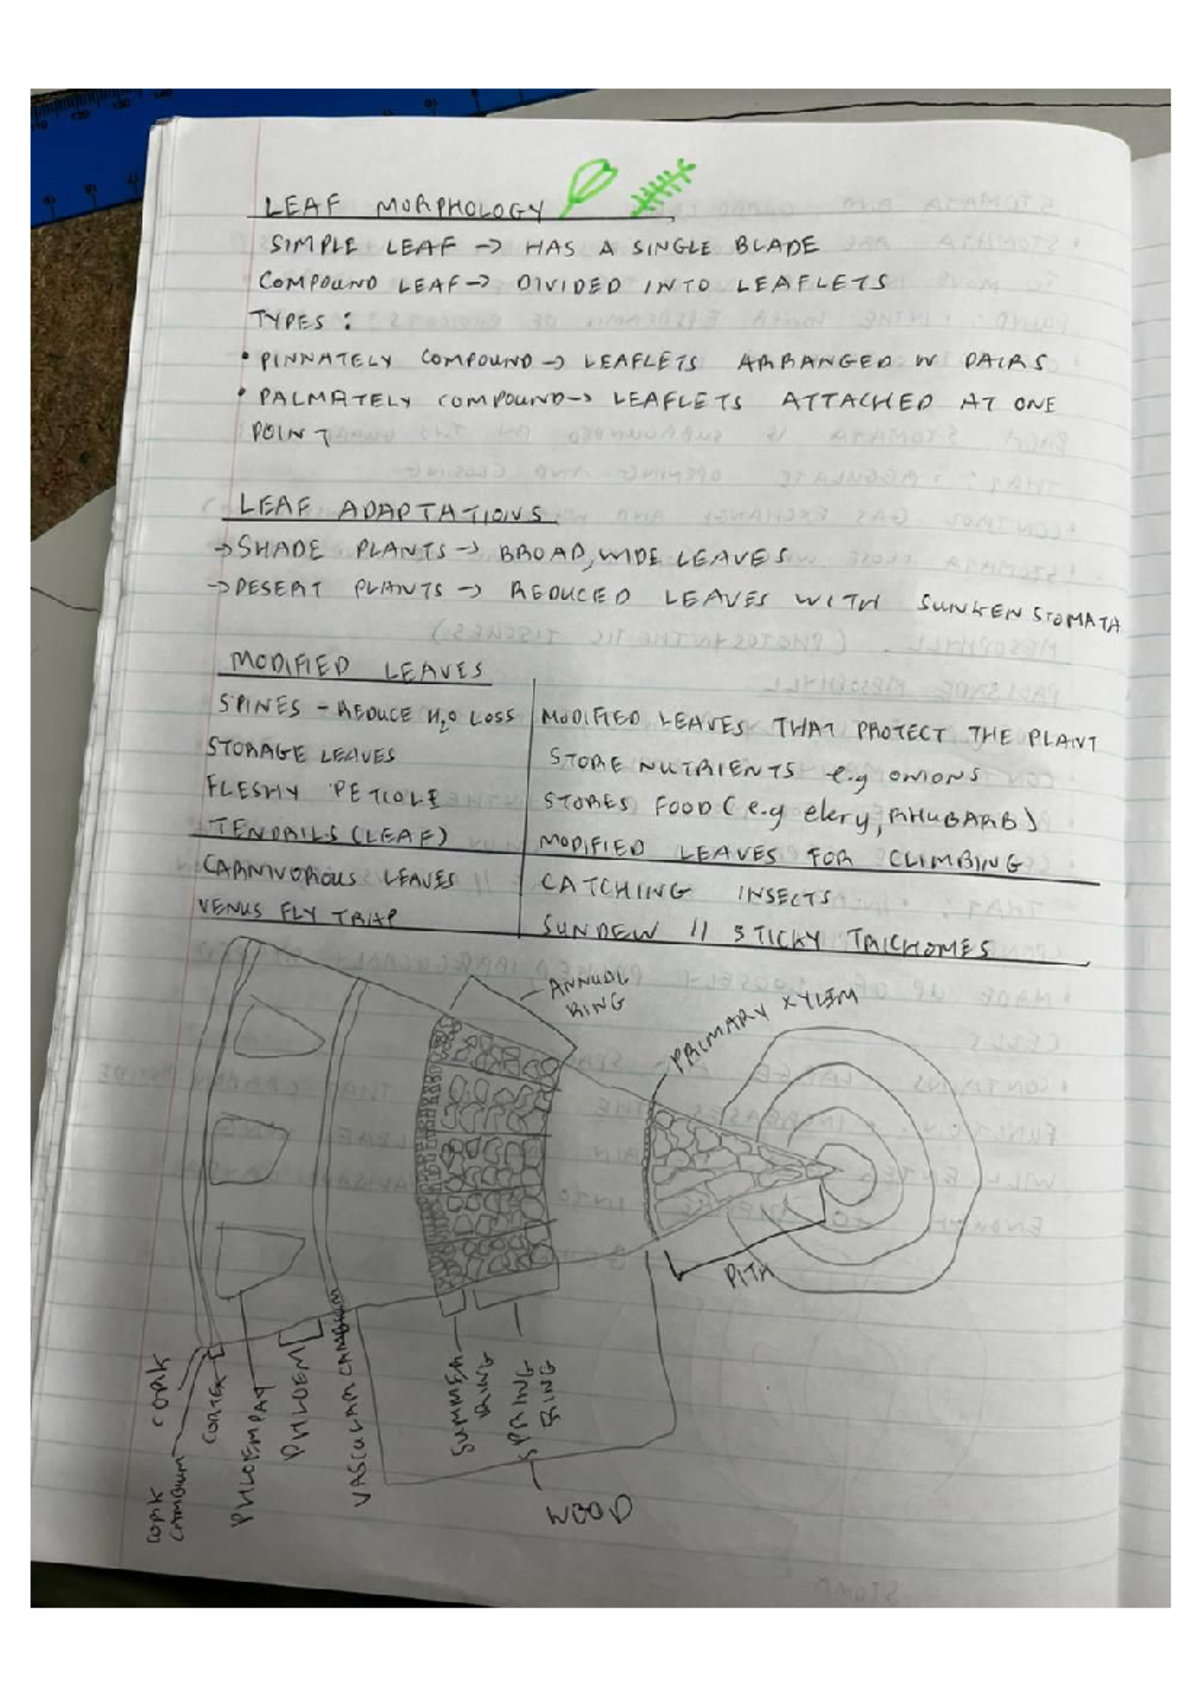 LEAF MORPHOLOGY
SIMPLE LEAF -> HAS A SINGLE BLADE
COMPOUND LEAF -> DIVIDED INTO LEAFLETS
TYPES :
• PINNATELY COMPOUND -> LEAFLETS ARRANGED IN PAIRS
• PALMATELY COMPOUND -> LEAFLETS ATTACHED AT ONE
POINT
LEAF ADAPTATIONS
-> SHADE PLANTS -> BROAD, WIDE LEAVES
-> DESERT PLANTS -> REDUCED LEAVES WITH SUNKEN STOMATA
MODIFIED LEAVES
SPINES - REDUCE H₂O LOSS MODIFIED LEAVES THAT PROTECT THE PLANT
STORAGE LEAVES STORE NUTRIENTS e.g ONIONS
FLESHY PETIOLE STORES FOOD (e.g elery, RHUBARB)
TENDRILS (LEAF) MODIFIED LEAVES FOR CLIMBING
CARNIVOROUS LEAVES CATCHING INSECTS
VENUS FLY TRAP SUNDEW // STICKY TRICHOMES
ANNUAL
RING
PRIMARY XYLEM
PITH
CORK
CORK
CAMBIUM
CORTEX
PHLOEM RAY
PHLOEM
VASCULAR CAMBIUM
SUMMER
RING
SPRING
RING
WOOD